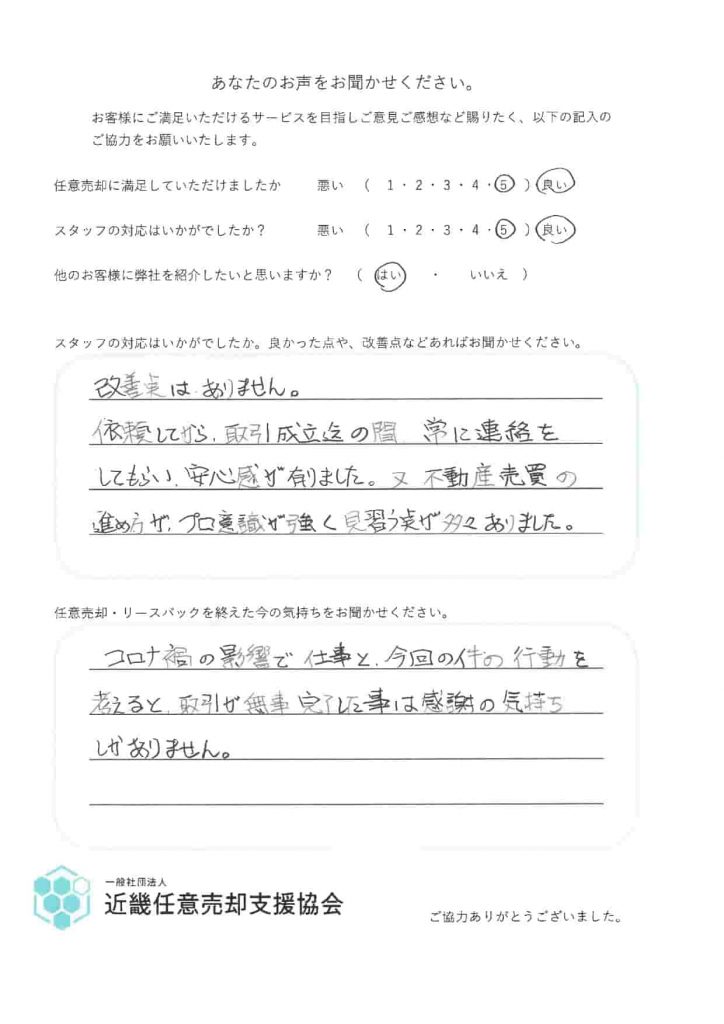 あなたのお声をお聞かせください。
お客様にご満足いただけるサービスを目指しご意見ご感想など賜りたく、以下の記入の
ご協力をお願いいたします。
任意売却に満足していただけましたか 悪い ( 1・2・3・4・5 ) 良い
スタッフの対応はいかがでしたか? 悪い ( 1・2・3・4・5 ) 良い
他のお客様に弊社を紹介したいと思いますか? ( はい ・ いいえ )
スタッフの対応はいかがでしたか。良かった点や、改善点などあればお聞かせください。
改善点は、ありません。
依頼してから、取引成立迄の間 常に連絡を
してもらい、安心感が有りました。又 不動産売買の
進め方が、プロ意識が強く見習う点が多々ありました。
任意売却・リースバックを終えた今の気持ちをお聞かせください。
コロナ禍の影響で仕事と、今回の件の行動を
考えると、取引が無事完了した事は感謝の気持ち
しかありません。
一般社団法人
近畿任意売却支援協会
ご協力ありがとうございました。